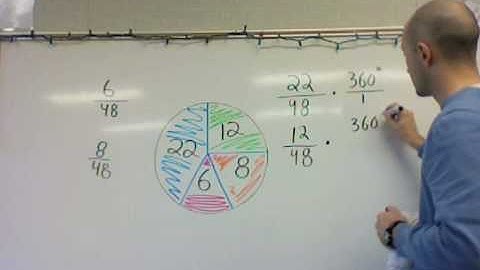 6/48
8/48
12
22
8
6
22/48 · 360°/1
12/48 · 360